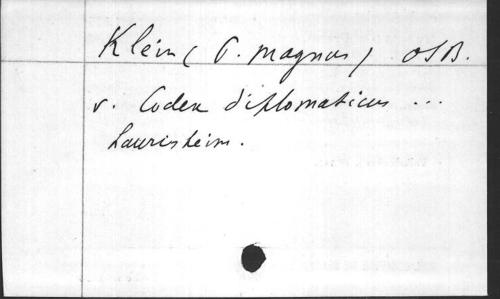 Klein (P. Magnus) OSB.
v. Codex diplomaticus ...
Laurisheim.